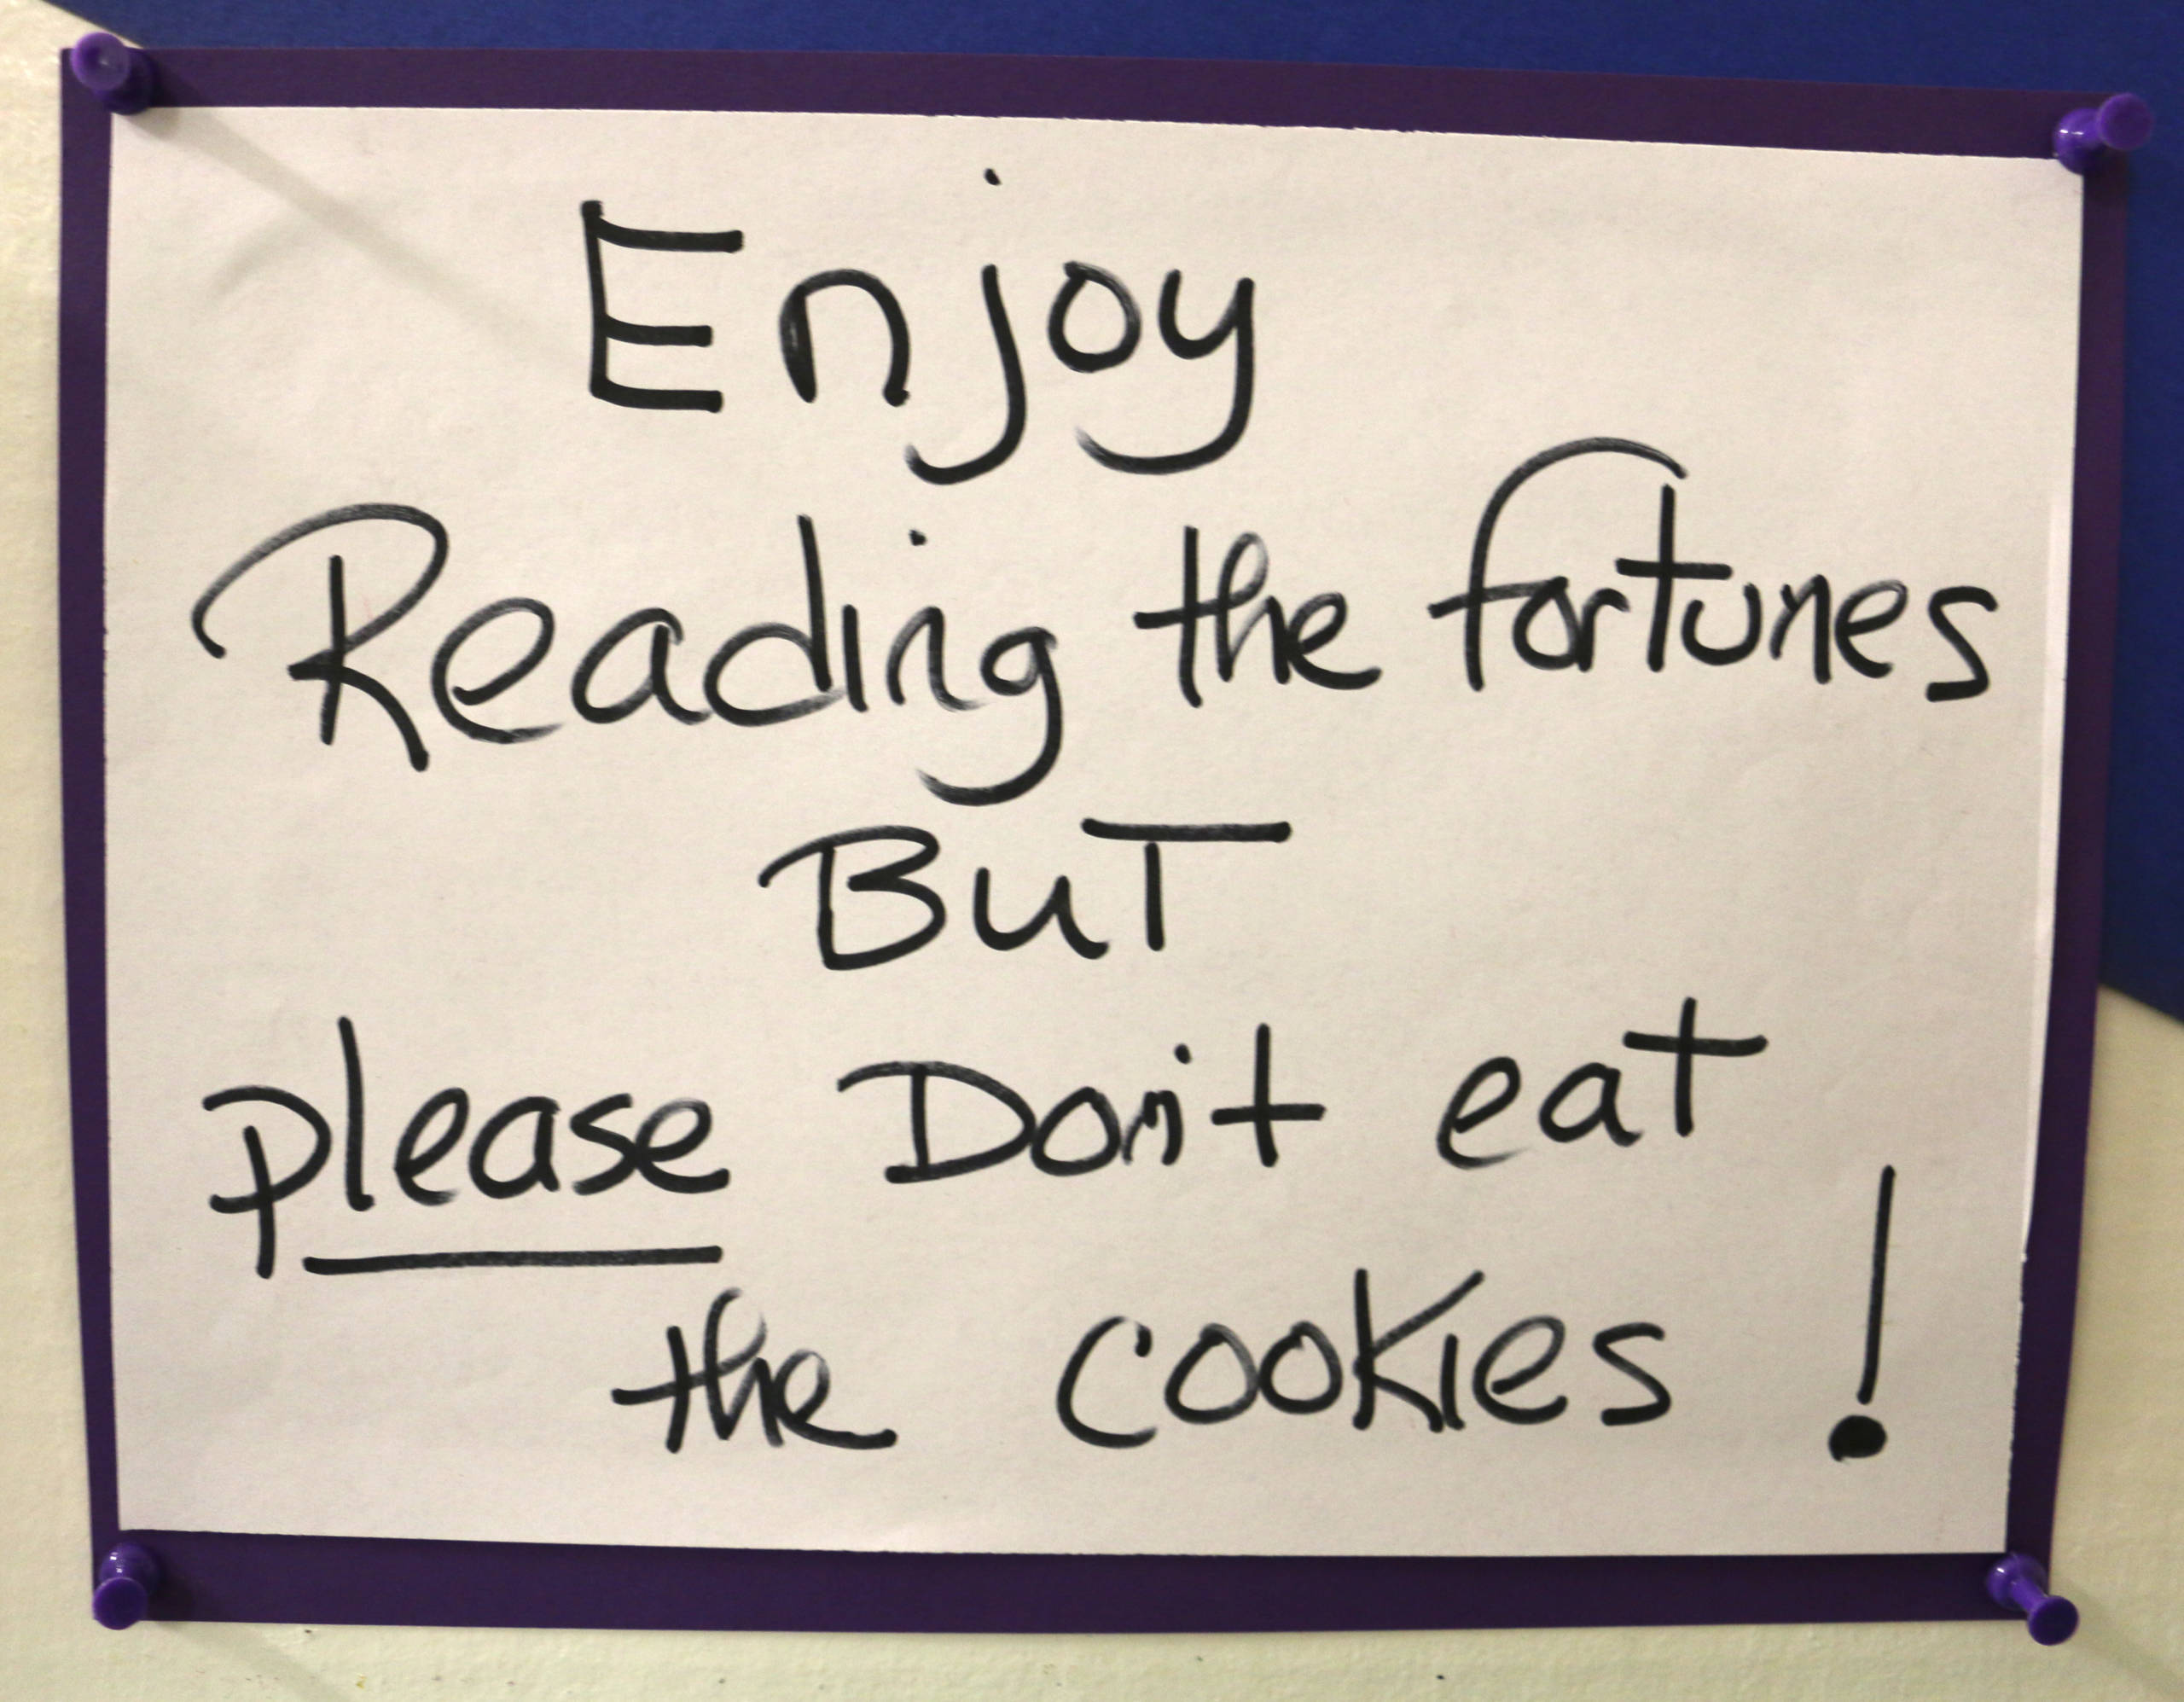 Enjoy
Reading the fortunes
BuT
please Don't eat
the cookies !